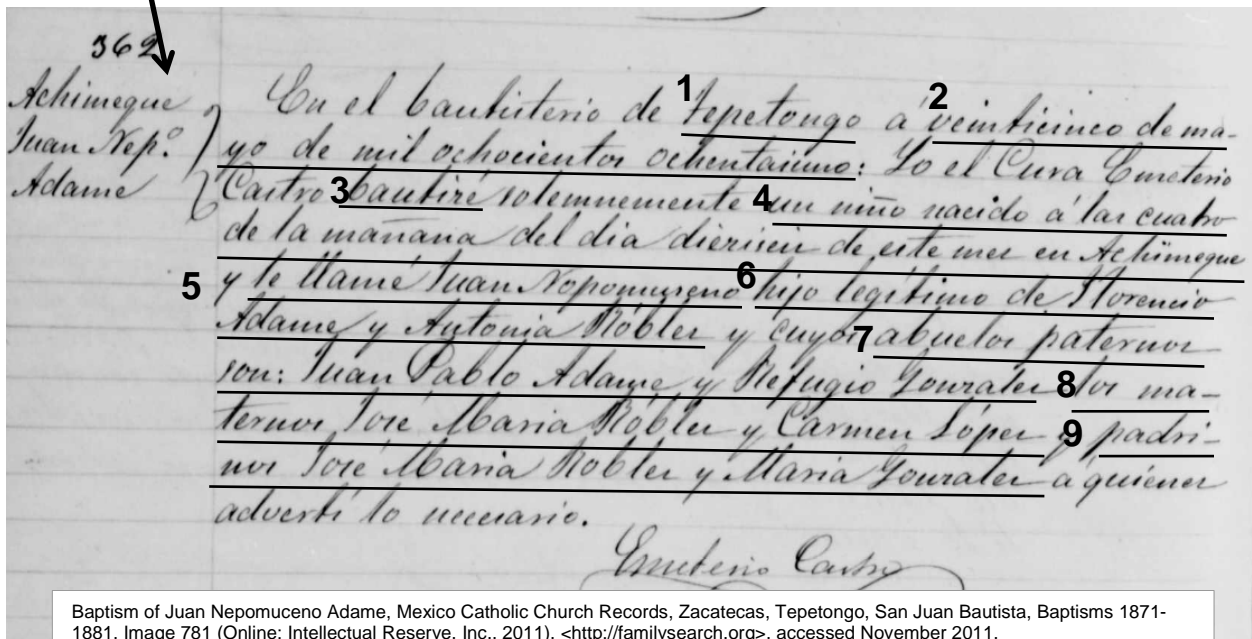 362
Achimeque
Juan Nep.º
Adame
En el bautisterio de 1 Tepetongo á 2 veinticinco de ma-
yo de mil ochocientos ochentaiuno: Yo el Cura Emeterio
Castro 3 bautizé solemnemente 4 un niño nacido á las cuatro
de la mañana del dia dieziseis de este mes en Achimeque
5 y le llamé Juan Nopomuseno 6 hijo legítimo de Florencio
Adame y Antonia Róbles y cuyos 7 abuelos paternos
son: Juan Pablo Adame y Refugio Gonzales 8 los ma-
ternos José Maria Róbles y Carmen López y 9 padri-
nos José Maria Robles y Maria Gonzales a quienes
advertí lo necesario.
Emeterio Castro
Baptism of Juan Nepomuceno Adame, Mexico Catholic Church Records, Zacatecas, Tepetongo, San Juan Bautista, Baptisms 1871-
1881, Image 781 (Online: Intellectual Reserve, Inc., 2011), <http://familysearch.org>, accessed November 2011.